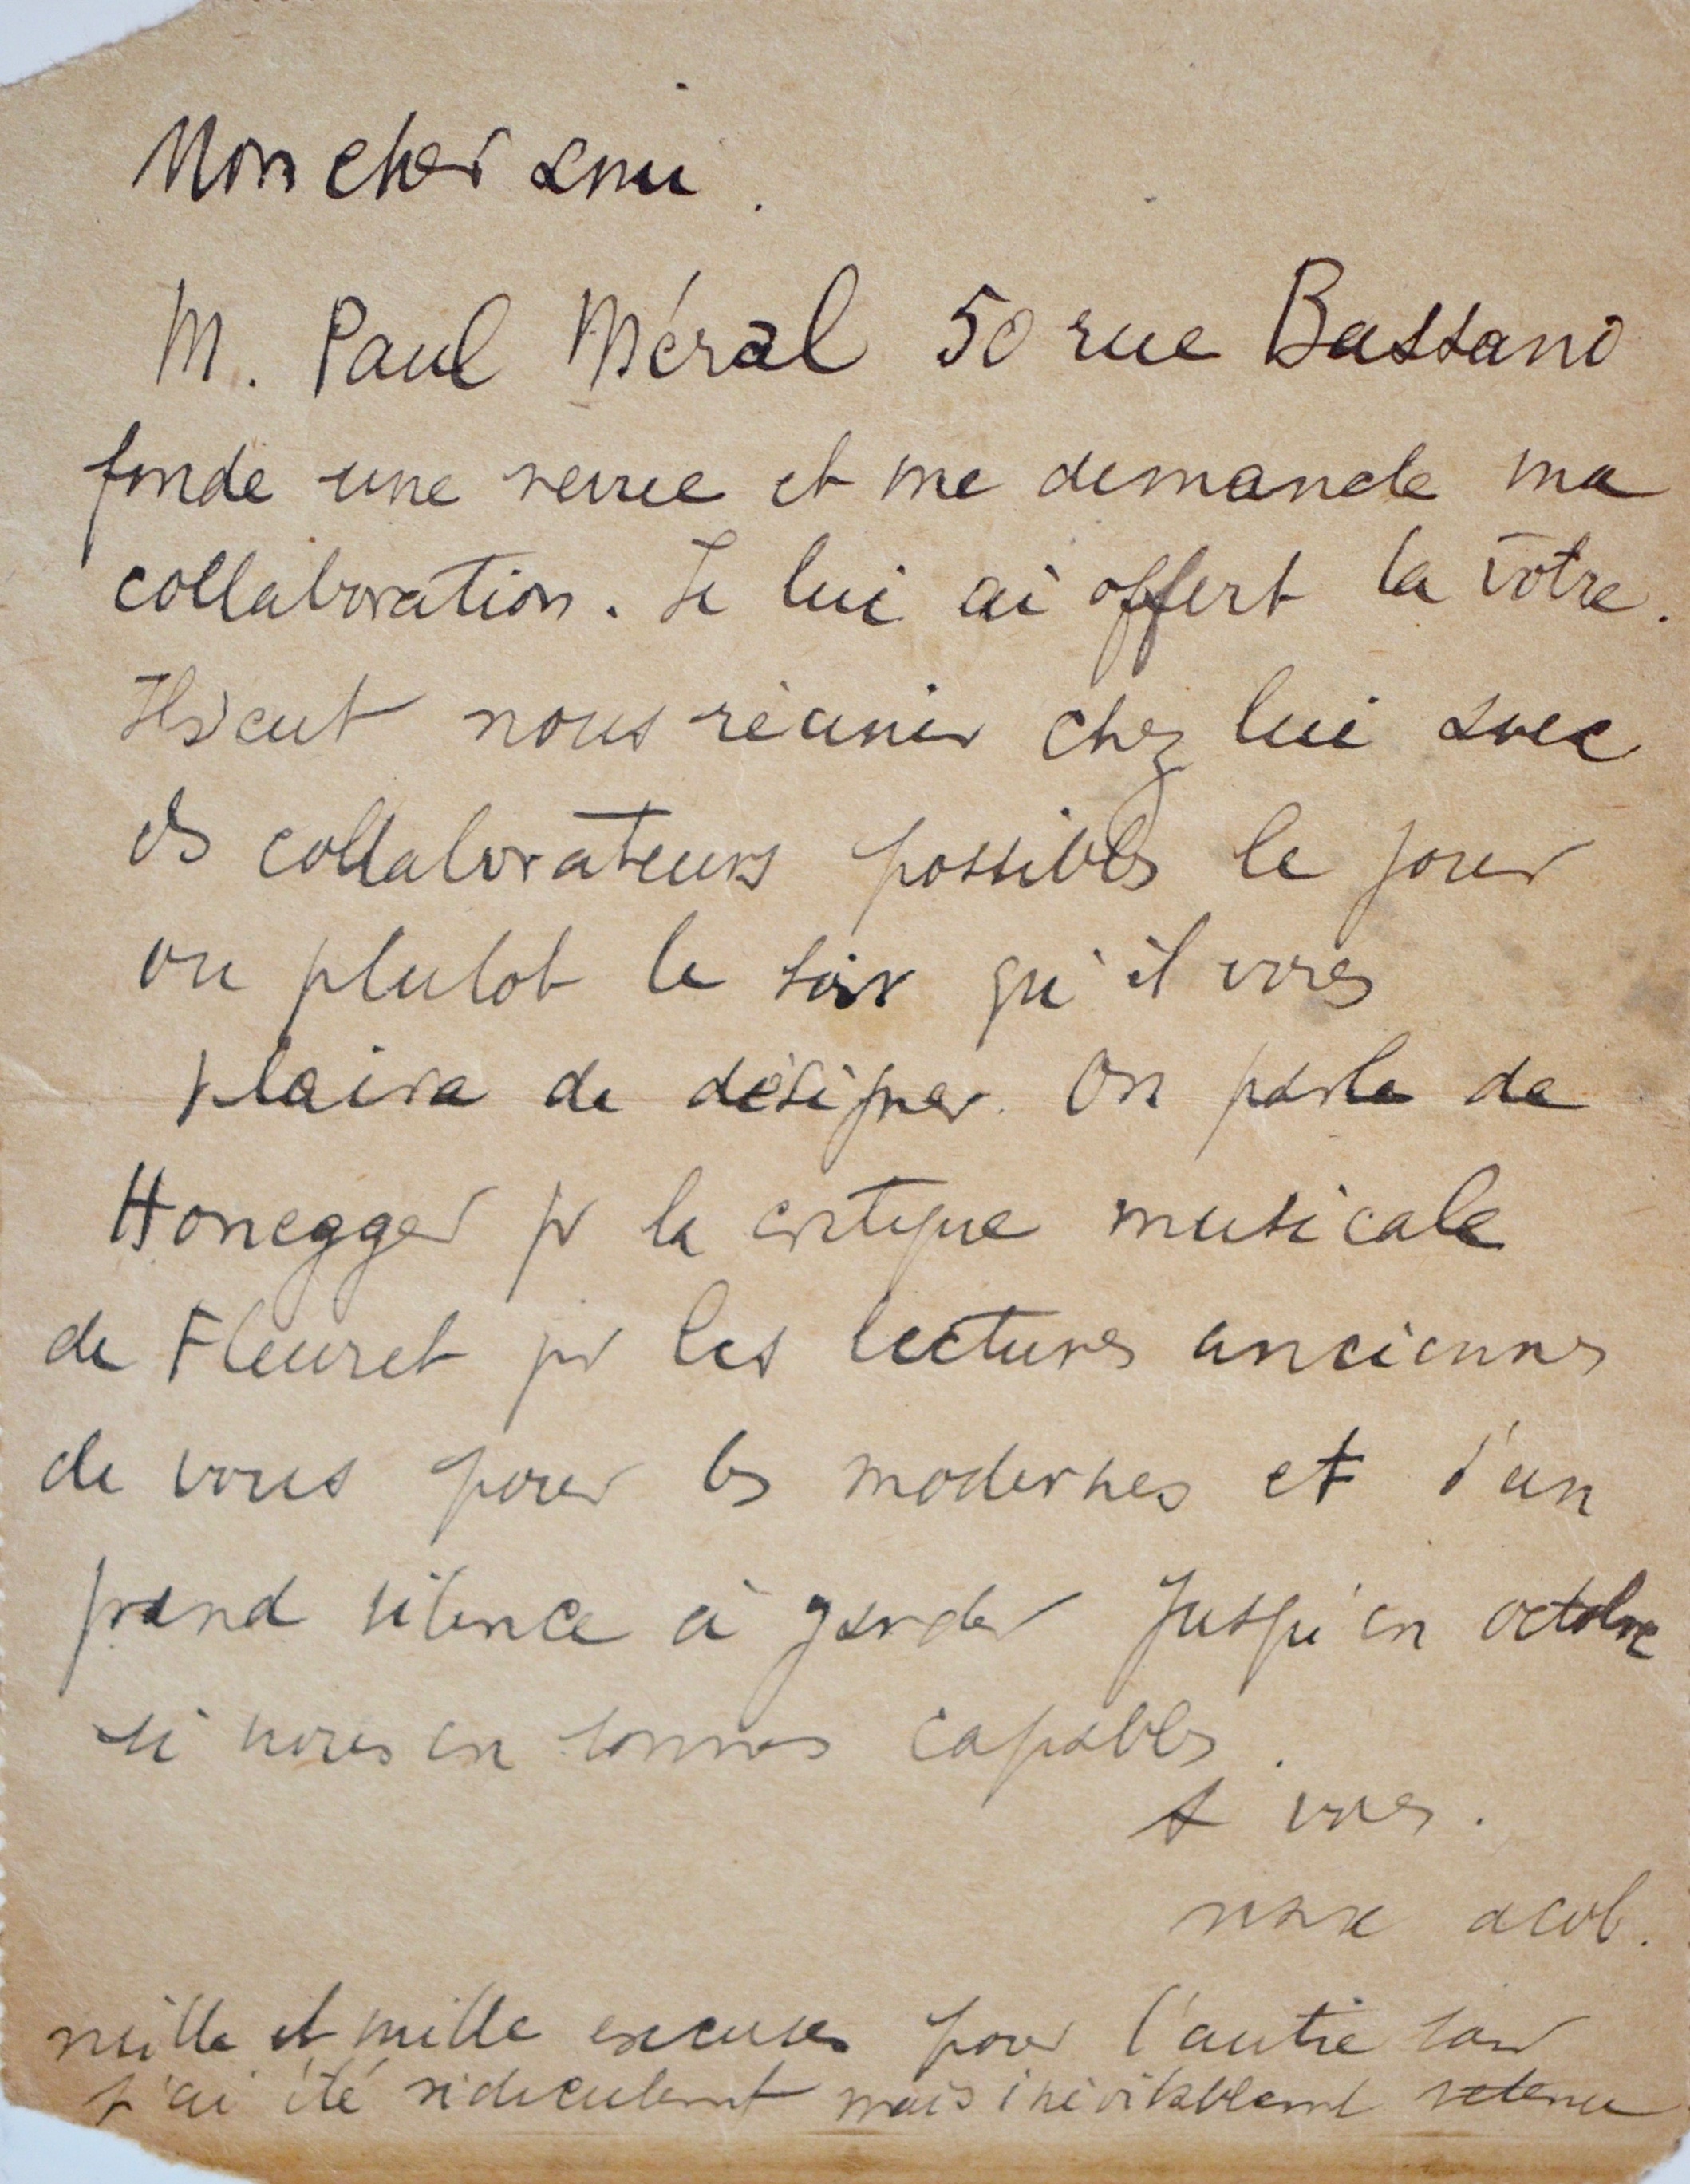 Mon cher ami.
M. Paul Méral 50 rue Bassano
fonde une revue et me demande ma
collaboration. Je lui ai offert la votre.
Il veut nous réunir chez lui avec
des collaborateurs possibles le jour
ou plutot le soir qu'il vous
plaira de désigner. On parle de
Honegger pr la critique musicale
de Fleuret pr les lectures anciennes
de vous pour les modernes et d'un
grand silence à garder jusqu'en octobre
si nous en sommes capables.
A vous.
max acob.
mille et mille excuses pour l'autre soir
j'ai été ridiculement mais inévitablement retenu